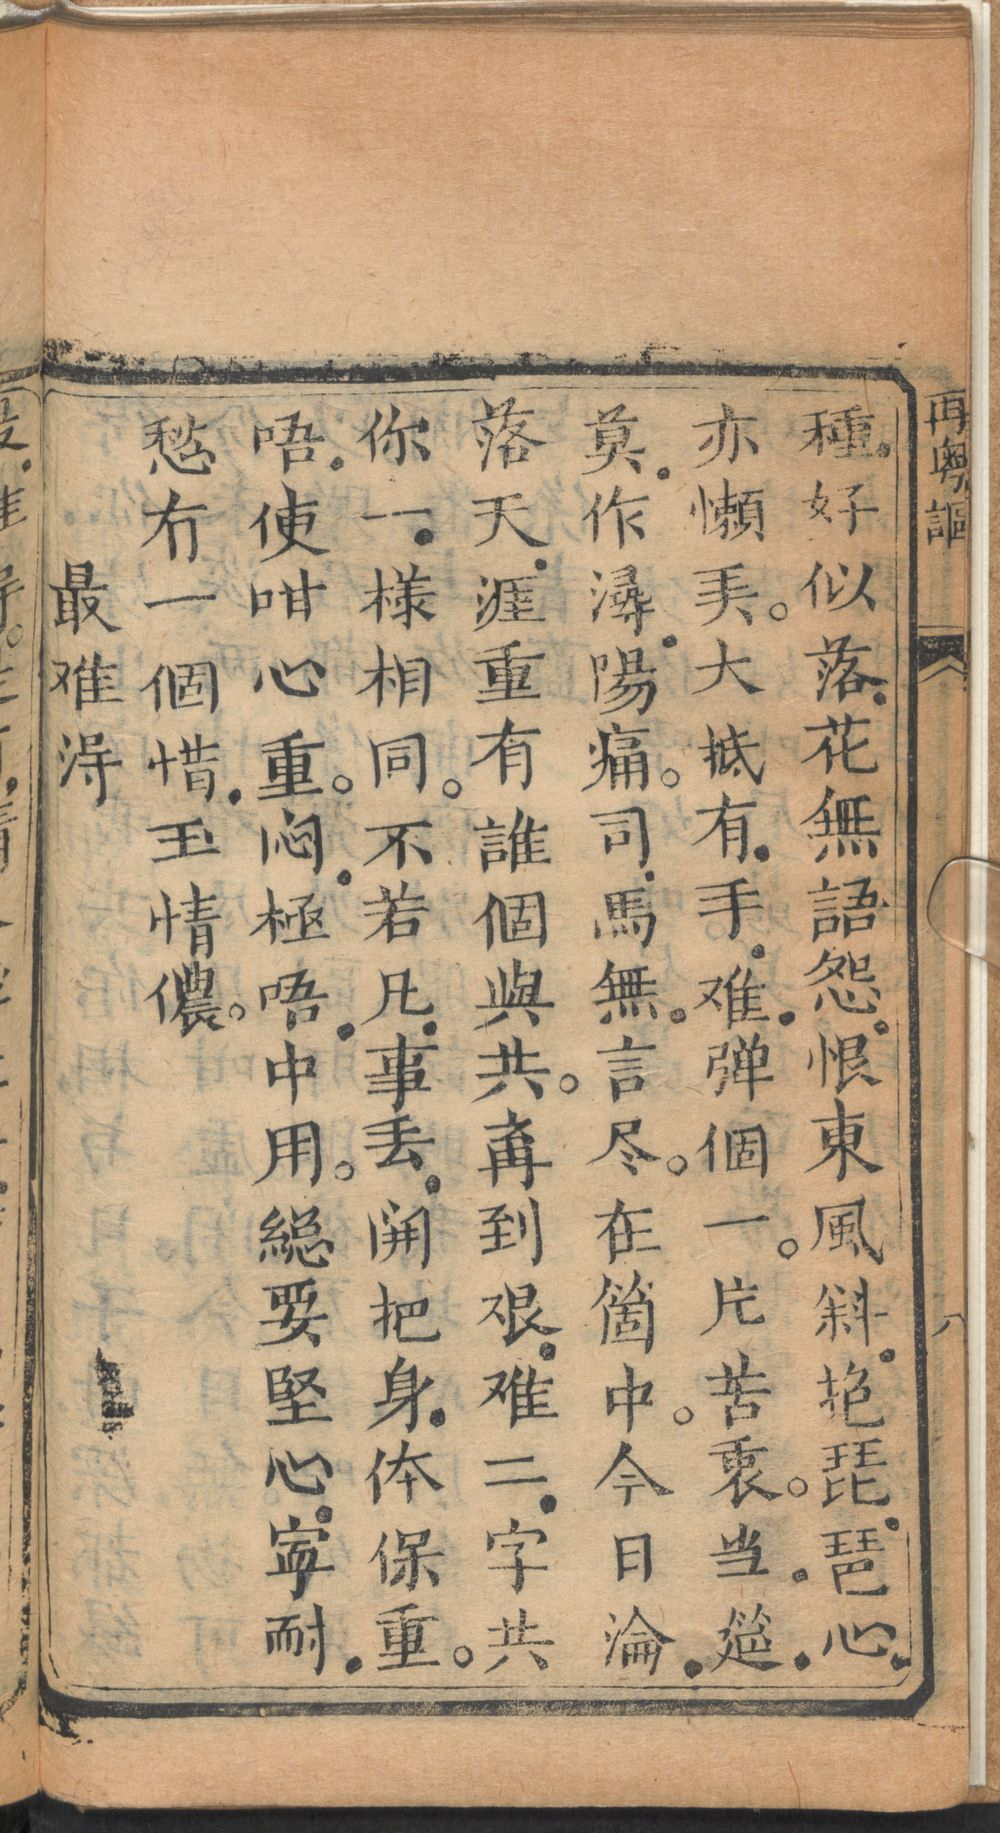 再粵謳
八
種好似落花無語怨恨東風斜抱琵琶心
亦懶美。大抵有手难弹個一。片苦衷。当筵
莫作潯陽痛。司馬無言尽。在箇中。今日淪
落天涯重有誰個與共。再到艰难二字共
你一樣相同。不若凡事丢開把身体保重。
唔使咁心重。闷極唔中用。縂要堅心寧耐
愁冇一個惜玉情儂。
最难淂